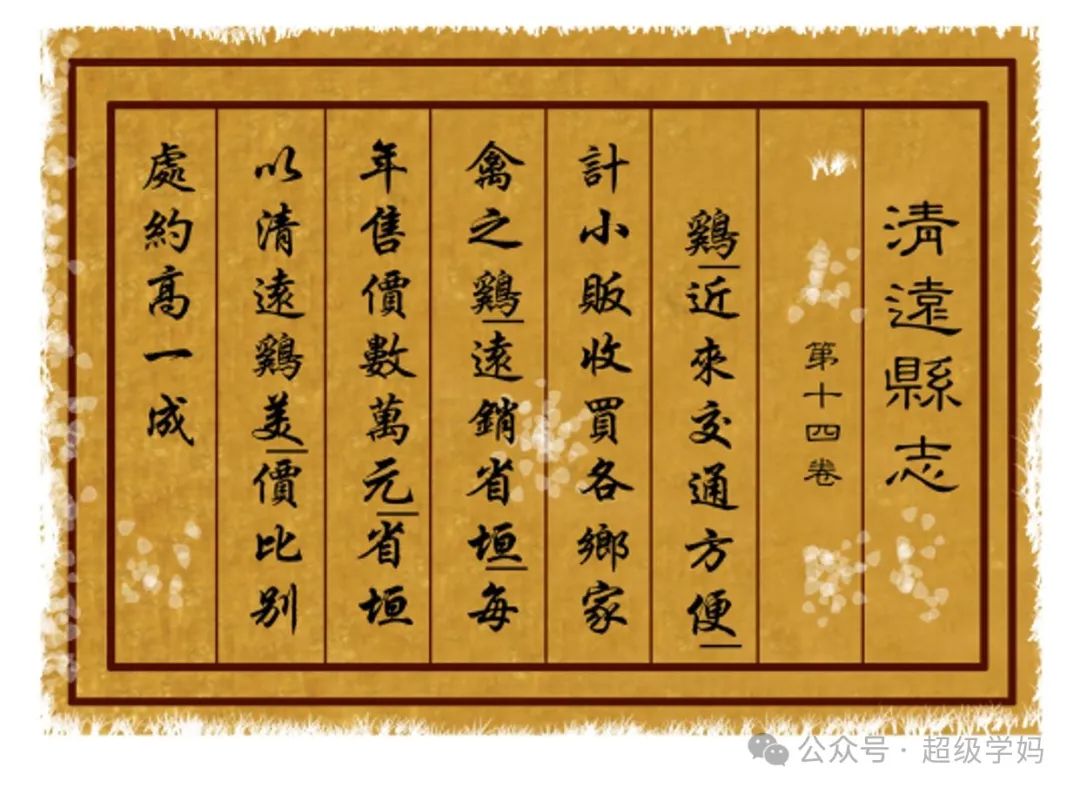 清遠縣志
第十四卷
鷄近來交通方便
計小販收買各鄉家
禽之鷄遠銷省垣每
年售價數萬元省垣
以清遠鷄美價比别
處約高一成
公众号·超级学妈